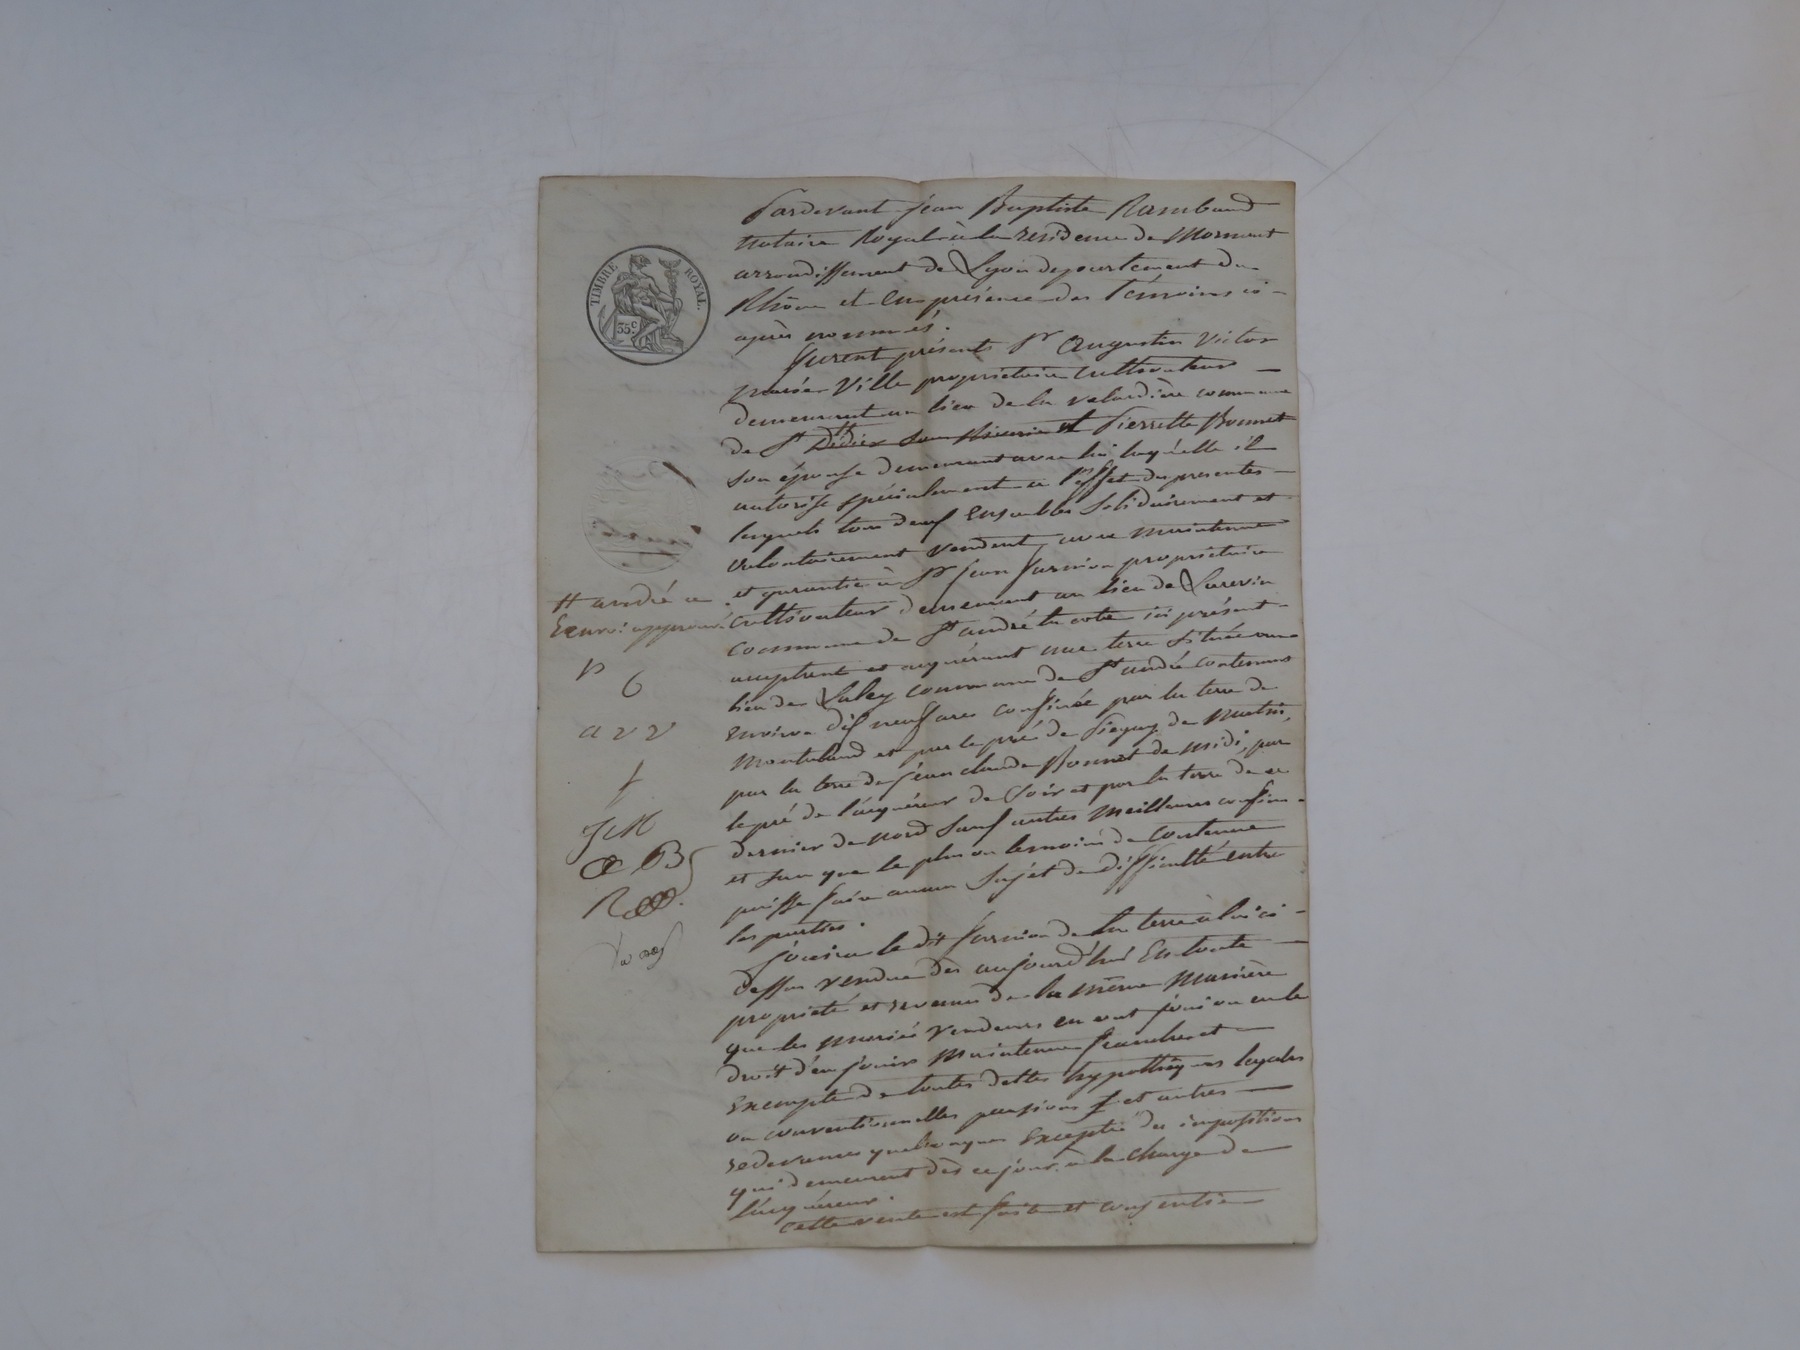 Pardevant Jean Baptiste Rambaud
Notaire Royal à la résidence de Mornant
arrondissement de Lyon departement du
Rhône et en présence des témoins ci-
après nommés.
furent présents Sr Augustin Victor
Ville propriétaire cultivateur
demeurant au lieu de la valardière commune
de St Didier sous Riverie et Pierrette Bonnet
son épouse demeurant avec lui laquelle il
autorise spécialement a l'effet des presentes
lesquels tous deux Ensembles Solidairement et
volontairement vendent, avec maintenue
et garantie à Sr Jean propriétaire
cultivateur demeurant au lieu de
commune de St andré la cote ici présent
acceptant et acquérant une terre située au
lieu de commune de St andré contenant
environ dix neuf ares confinée par la terre de
et par le pré de de matin,
par la terre de Jean claude Bonnet de midi, par
le pré de l'acquéreur de soir et par la terre de ce
dernier de nord sauf autres meilleures confins
et sans que le plus ou le moins de contenue
puisse faire aucun sujet de difficulté entre
les parties.
Jouira le dit de la terre à lui ci-
dessus vendue dès aujourd'hui En toute
propriété et revenus de la même Manière
que les mariés vendeurs en ont joui ou eu le
droit d'en jouir Maintenue franche et
Exempte de toutes dettes hypothèques legales
ou conventionnelles pensions et autres
redevances quelconques Excepté des impositions
qui demeurent dès ce jour à la charge de
l'acquéreur.
cette vente est faite et consentie
TIMBRE ROYAL.
35c
# andré a
Renvoi approuvé
P
6
a v v
f
JcM
B
R